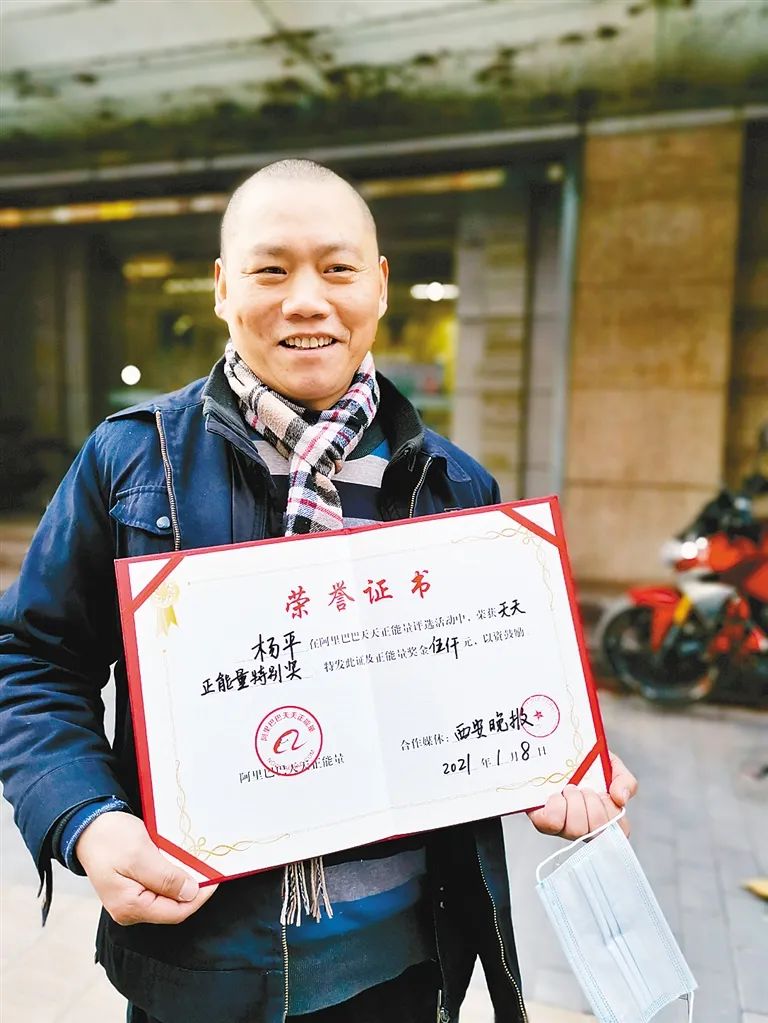 荣誉证书
杨平 在阿里巴巴天天正能量评选活动中，荣获 天天
正能量特别奖 特发此证及正能量奖金 伍仟 元，以资鼓励。
阿里巴巴天天正能量
阿里巴巴天天正能量
合作媒体：西安晚报
2021年1月8日